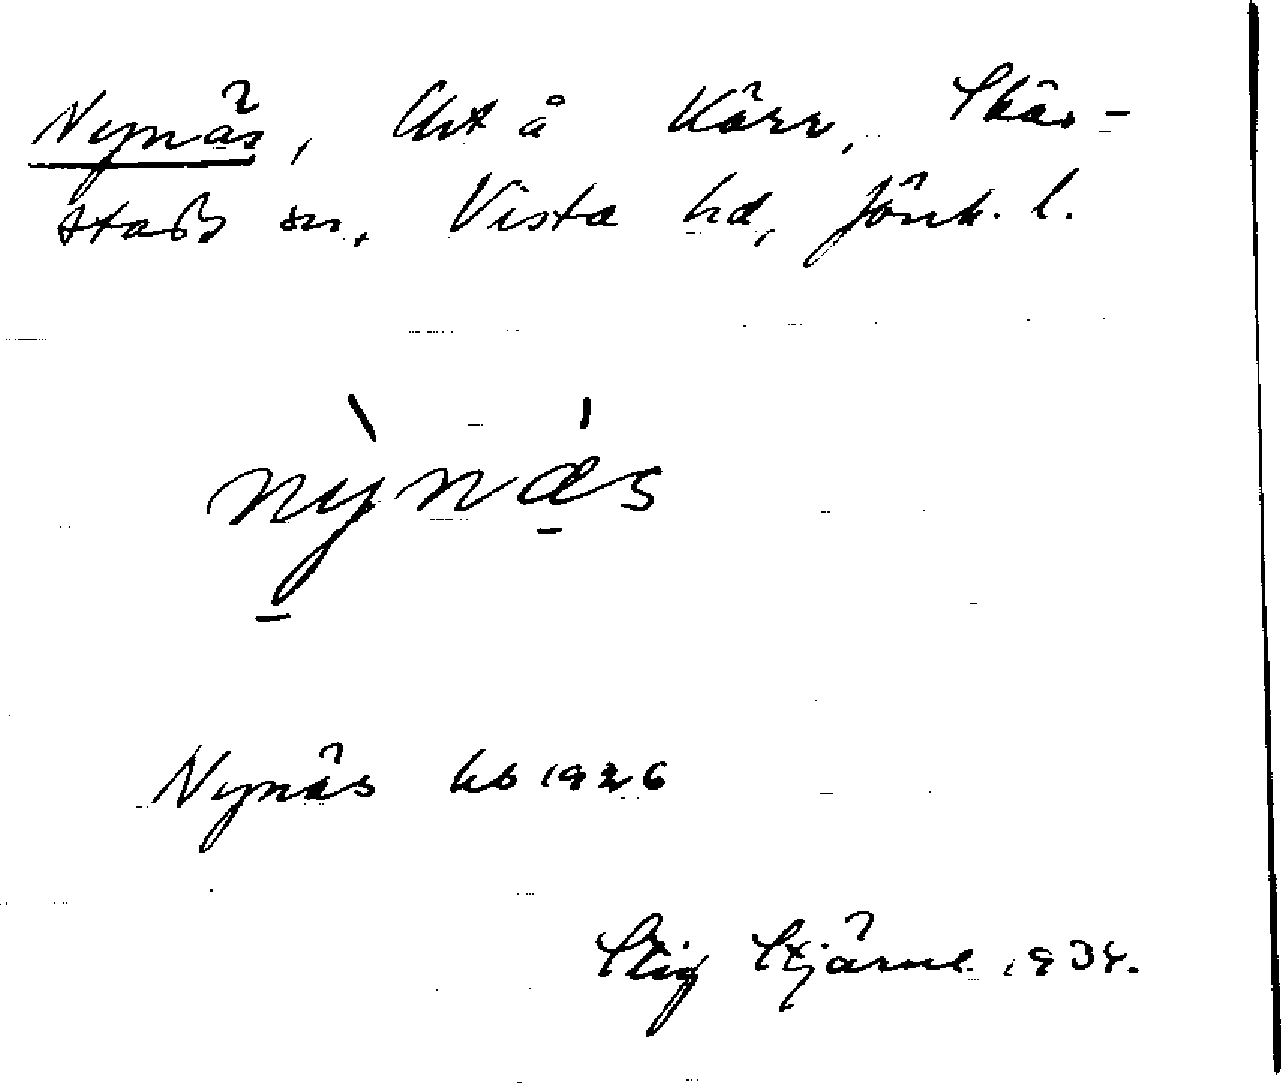 Nynäs, lht å Kärr, Skär-
stads sn, Vista hd, Jönk. l.
nỳnǽs
Nynäs hb 1926
Stig Stjärne 1934.